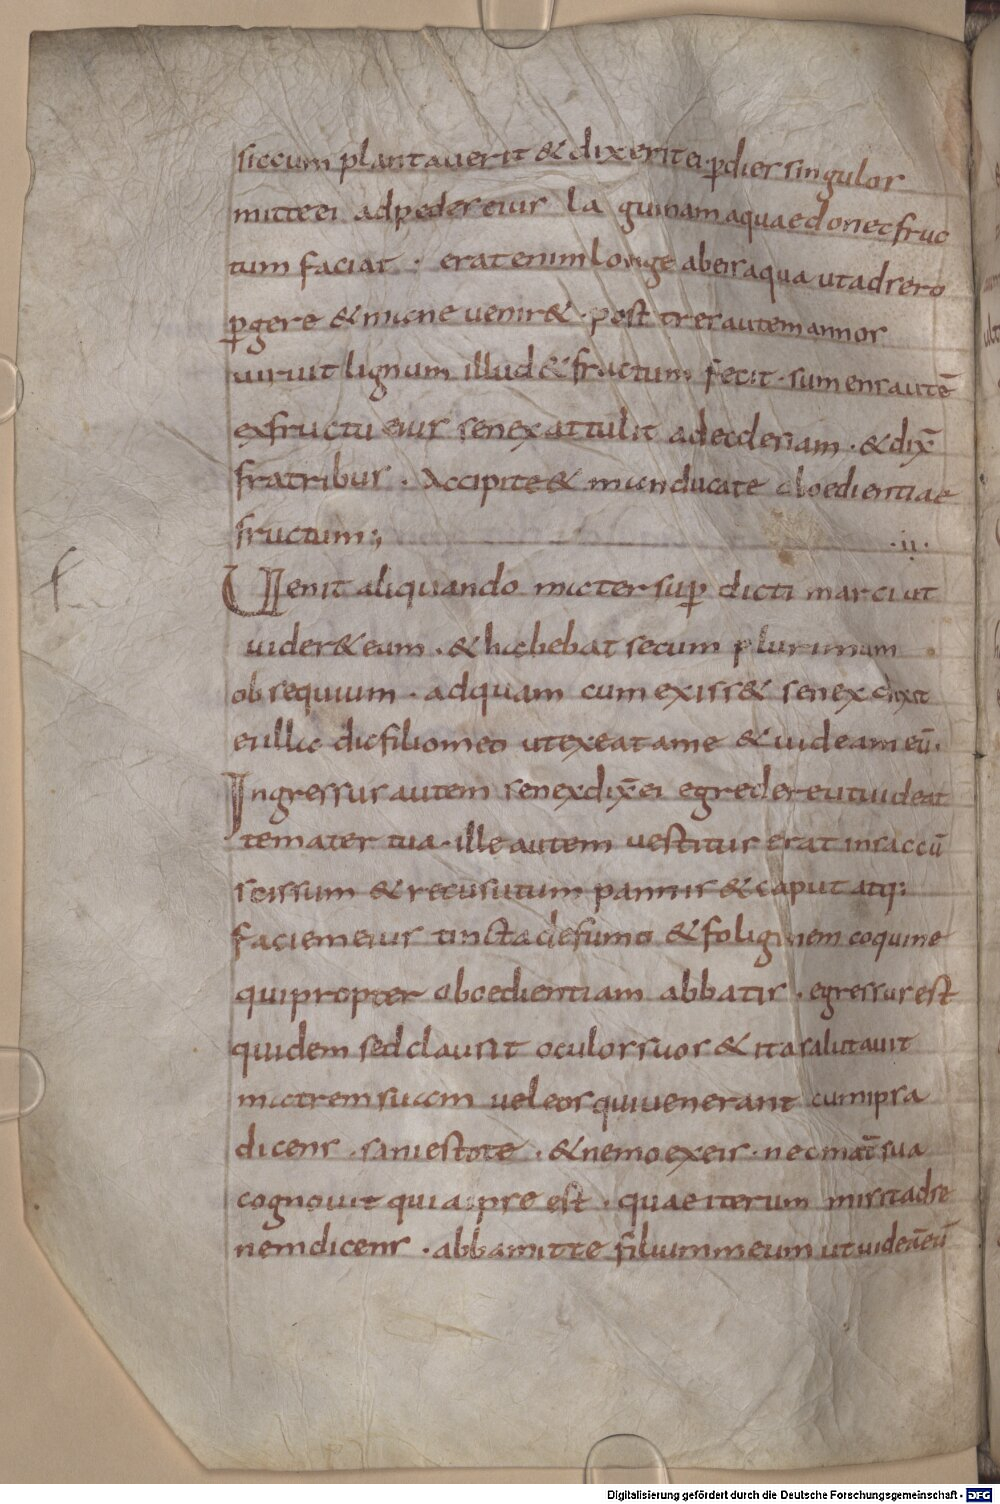 siccum plantauerit & dixerit ei p̱ dies singulos
mitte ei ad pedes eius la guinam aquae donec fruc
tum faciat · erat enim longe ab eis aqua ut ad sero
p̱gere & mane uenir& · post tres autem annos
uixit lignum illud & fructum fecit · sumens autē
ex fructu eius senex attulit ad ecclesiam · & dix̄
fratribus · Accipite & manducate oboedientiae
fructum;
·ii·
Uenit aliquando mater sup̱ dicti marci ut
uider& eum · & habebat secum plurimum
obsequium · ad quam cum exiss& senex dixit
ei illa dic filio meo ut exeat a me & uideam eū·
Ingressus autem senex dix̄ ei egredere ut uideat
te mater tua · ille autem uestitus erat in saccū
scissum & recusutum pannis & caput atq:
faciem eius tincta de fumo & foliginem coquine
qui propter oboedientiam abbatis · egressus est
quidem sed clausit oculos suos & ita salutauit
matrem suam uel eos qui uenerant cum ipsa
dicens · sani estote · & nemo ex eis · nec mat̄ sua
cognouit quia ipse est · quae iterum misit ad se
nem dicens · abba mitte filium meum ut uideā eū
f
Digitalisierung gefördert durch die Deutsche Forschungsgemeinschaft - DFG